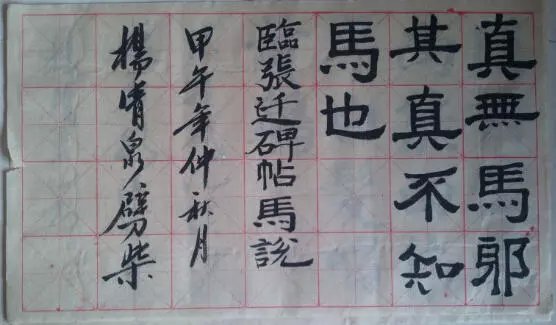 真無馬邪
其真不知
馬也
臨張迁碑帖馬説
甲午年仲秋月
楊清泉劈柴